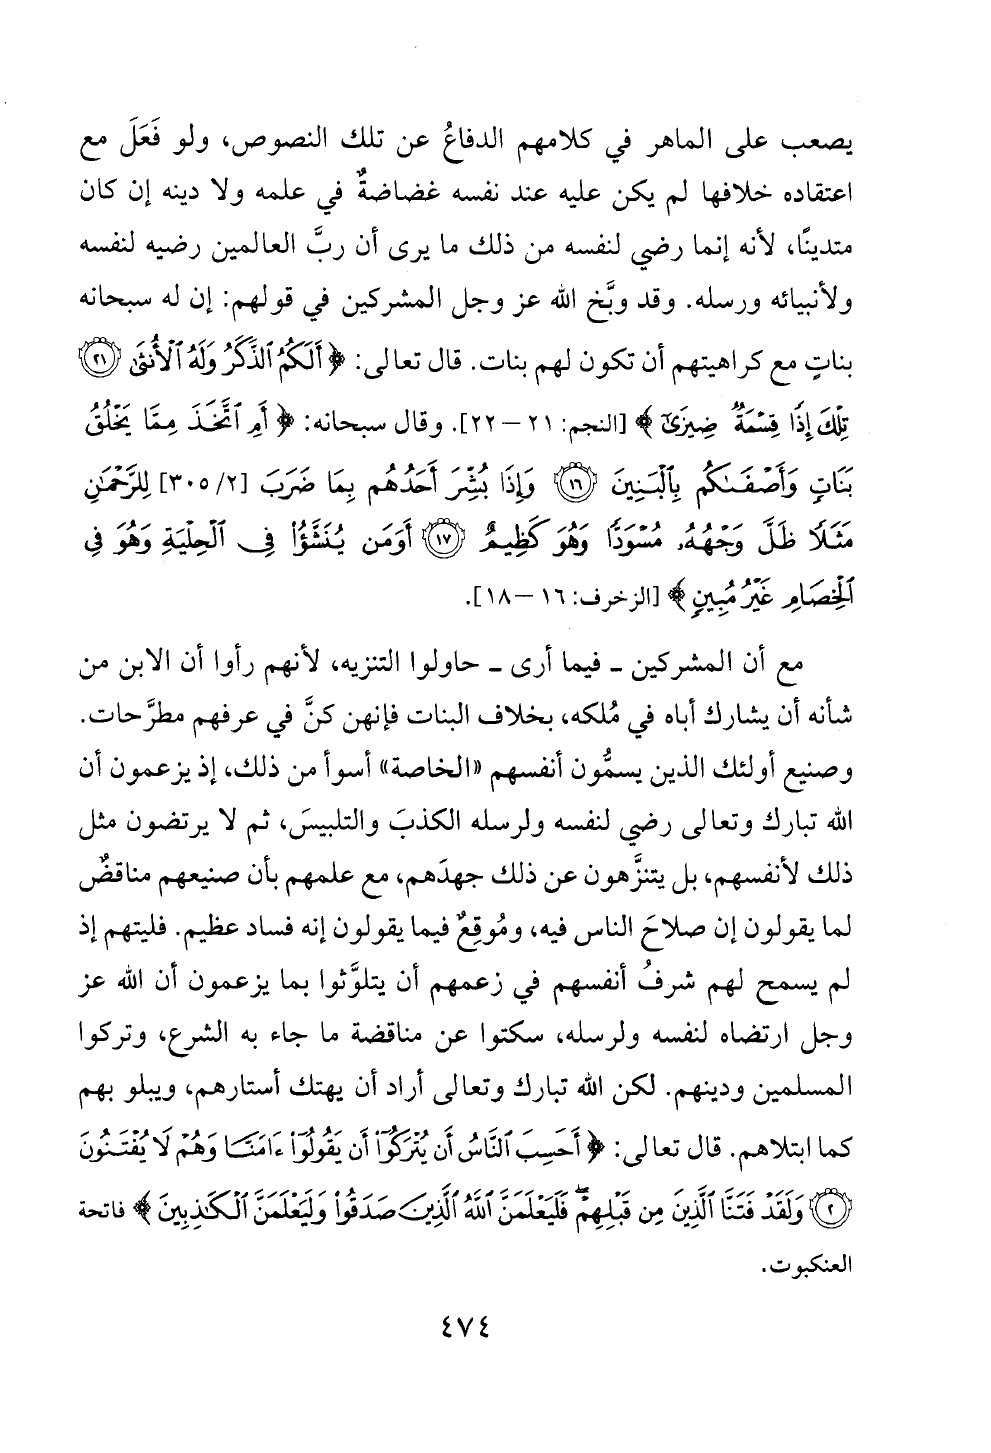 يصعب على الماهر في كلامهم الدفاعُ عن تلك النصوص، ولو فَعَلَ مع
اعتقاده خلافها لم يكن عليه عند نفسه غضاضةٌ في علمه ولا دينه إن كان
متدينًا، لأنه إنما رضي لنفسه من ذلك ما يرى أن ربَّ العالمين رضيه لنفسه
ولأنبيائه ورسله. وقد وبَّخ الله عز وجل المشركين في قولهم: إن له سبحانه
بناتٍ مع كراهيتهم أن تكون لهم بنات. قال تعالى: ﴿ أَلَكُمُ ٱلذَّكَرُ وَلَهُ ٱلْأُنثَىٰ ٢١
تِلْكَ إِذًا قِسْمَةٌ ضِيزَىٰٓ ﴾ [النجم: ٢١ – ٢٢]. وقال سبحانه: ﴿ أَمِ ٱتَّخَذَ مِمَّا يَخْلُقُ
بَنَاتٍ وَأَصْفَىٰكُم بِٱلْبَنِينَ ١٦ وَإِذَا بُشِّرَ أَحَدُهُم بِمَا ضَرَبَ [٢/ ٣٠٥] لِلرَّحْمَٰنِ
مَثَلًا ظَلَّ وَجْهُهُۥ مُسْوَدًّا وَهُوَ كَظِيمٌ ١٧ أَوَمَن يُنَشَّؤُا۟ فِى ٱلْحِلْيَةِ وَهُوَ فِى
ٱلْخِصَامِ غَيْرُ مُبِينٍ ﴾ [الزخرف: ١٦ – ١٨].
مع أن المشركين ـ فيما أرى ـ حاولوا التنزيه، لأنهم رأوا أن الابن من
شأنه أن يشارك أباه في مُلكه، بخلاف البنات فإنهن كنَّ في عرفهم مطرَّحات.
وصنيع أولئك الذين يسمُّون أنفسهم «الخاصة» أسوأ من ذلك، إذ يزعمون أن
الله تبارك وتعالى رضي لنفسه ولرسله الكذبَ والتلبيسَ، ثم لا يرتضون مثل
ذلك لأنفسهم، بل يتنزَّهون عن ذلك جهدَهم، مع علمهم بأن صنيعهم مناقضٌ
لما يقولون إن صلاحَ الناس فيه، ومُوقِعٌ فيما يقولون إنه فساد عظيم. فليتهم إذ
لم يسمح لهم شرفُ أنفسهم في زعمهم أن يتلوَّثوا بما يزعمون أن الله عز
وجل ارتضاه لنفسه ولرسله، سكتوا عن مناقضة ما جاء به الشرع، وتركوا
المسلمين ودينهم. لكن الله تبارك وتعالى أراد أن يهتك أستارهم، ويبلو بهم
كما ابتلاهم. قال تعالى: ﴿ أَحَسِبَ ٱلنَّاسُ أَن يُتْرَكُوٓا۟ أَن يَقُولُوٓا۟ ءَامَنَّا وَهُمْ لَا يُفْتَنُونَ
٢ وَلَقَدْ فَتَنَّا ٱلَّذِينَ مِن قَبْلِهِمْ ۖ فَلَيَعْلَمَنَّ ٱللَّهُ ٱلَّذِينَ صَدَقُوا۟ وَلَيَعْلَمَنَّ ٱلْكَٰذِبِينَ ﴾ فاتحة
العنكبوت.
٤٧٤